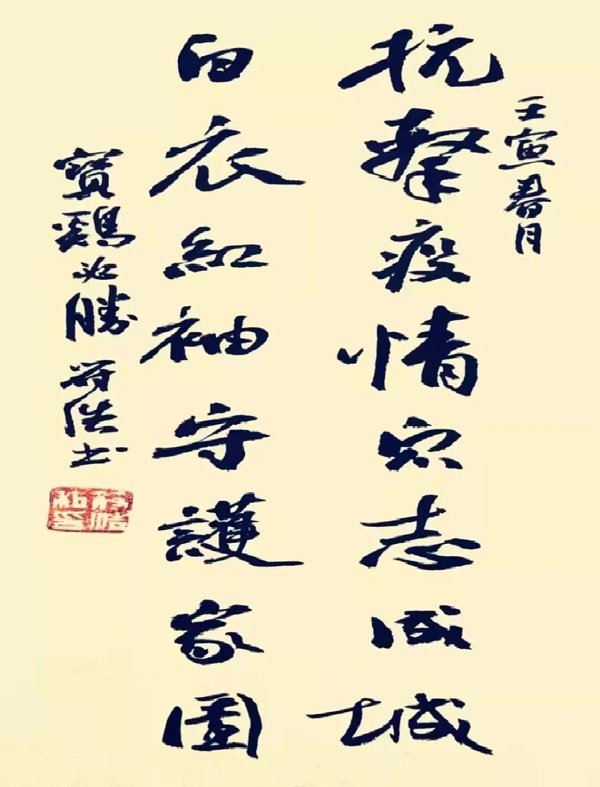 壬寅春月
抗擊疫情众志成城
白衣紅袖守護家園
寶鷄必勝 符浩书